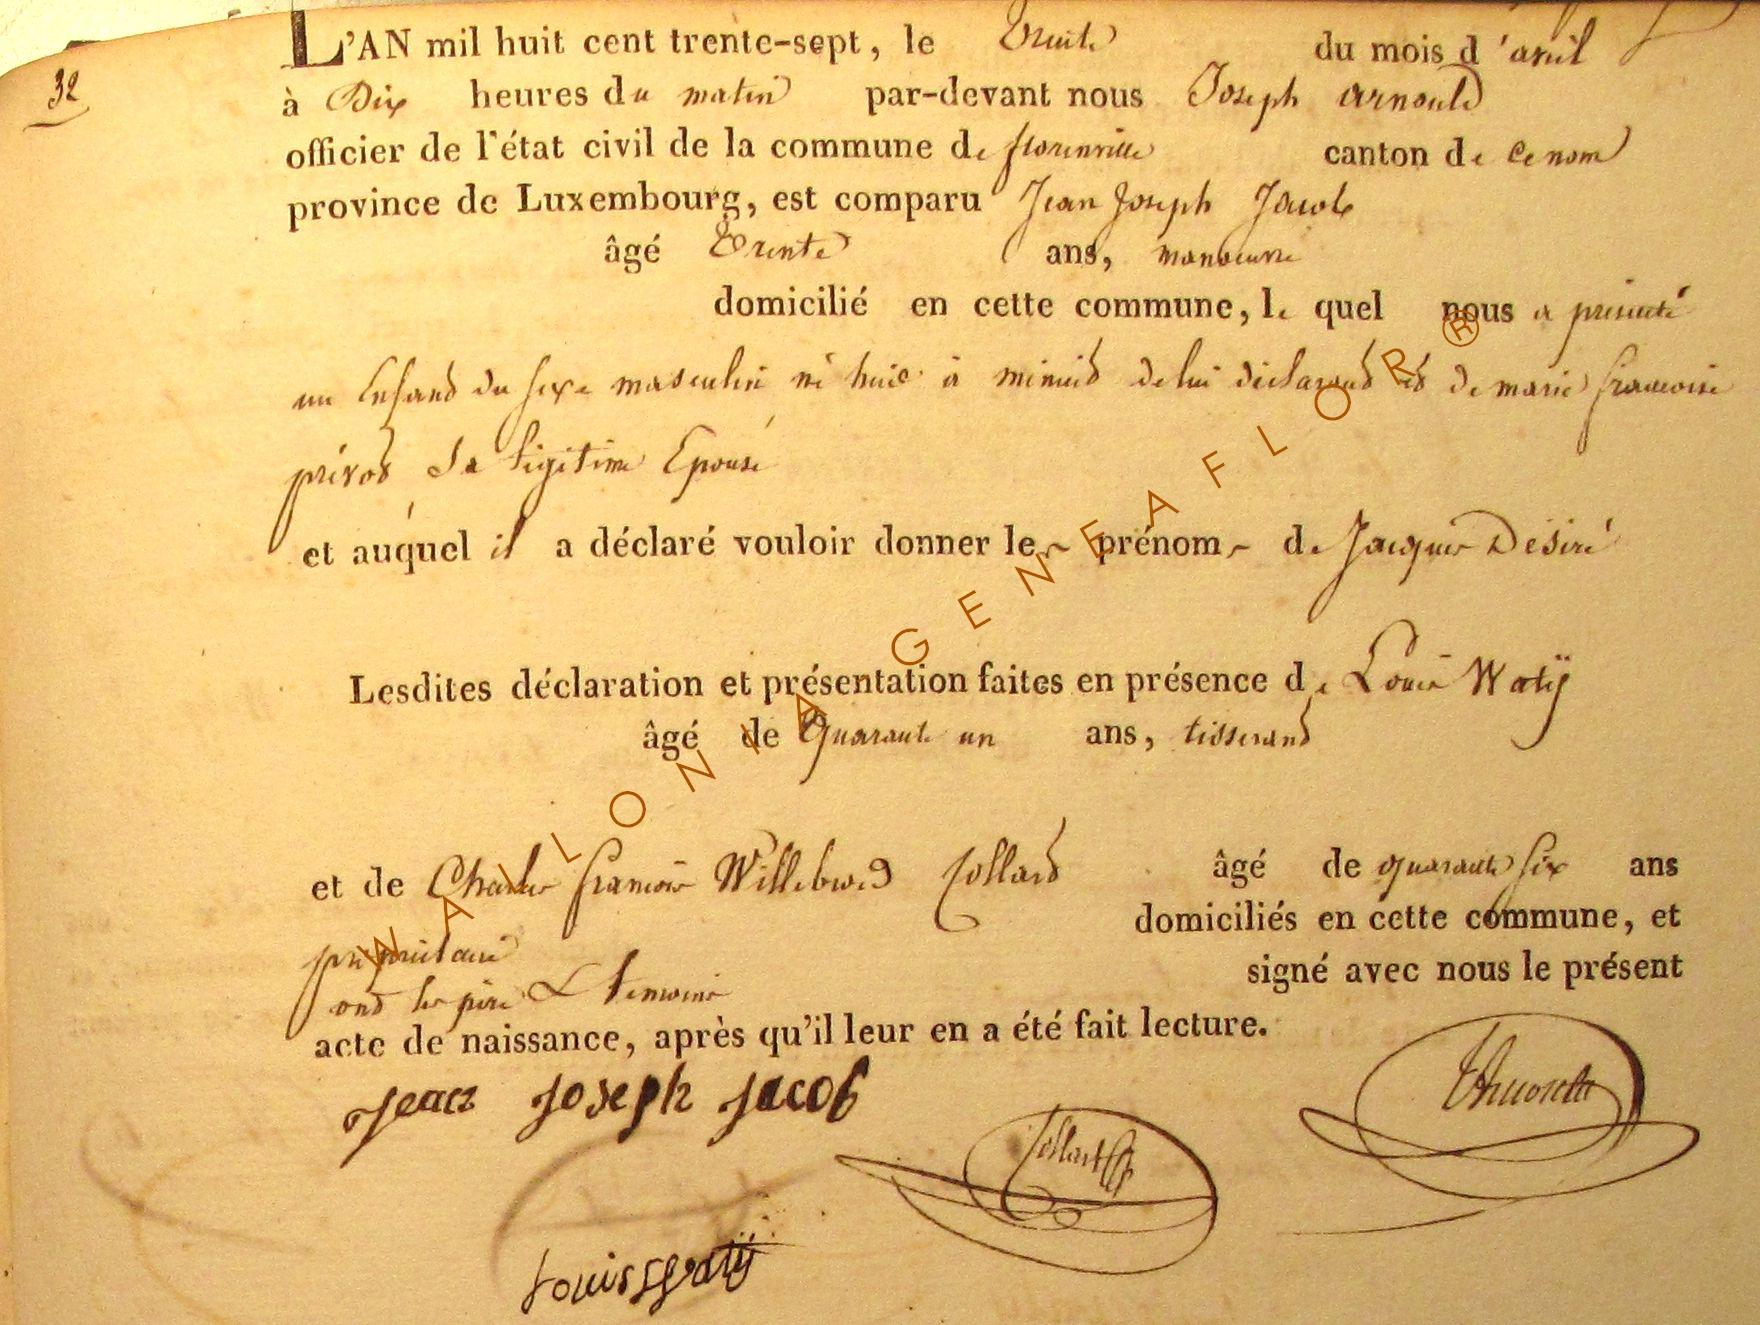 32
L'AN mil huit cent trente-sept, le trente du mois d'avril
à Dix heures du matin par-devant nous Joseph arnould
officier de l'état civil de la commune de florenville canton de ce nom
province de Luxembourg, est comparu Jean Joseph Jacob
âgé trente ans, manoeuvre
domicilié en cette commune, le quel nous a présenté
un Enfand du sexe masculin né hier à minuid de lui déclarand et de marie francoise
prévod Sa légitime Epouse
et auquel il a déclaré vouloir donner les prénoms de Jacques Désiré
Lesdites déclaration et présentation faites en présence de Louis Watÿ
âgé de Quarante un ans, tisserand
et de Charles francois Willebrod Collard âgé de quarante six ans
propriétaire domiciliés en cette commune, et
ond les père & témoins signé avec nous le présent
acte de naissance, après qu'il leur en a été fait lecture.
Jean Joseph Jacob
Collart
Louis Watÿ
WALLONIA GENEAFLOR®